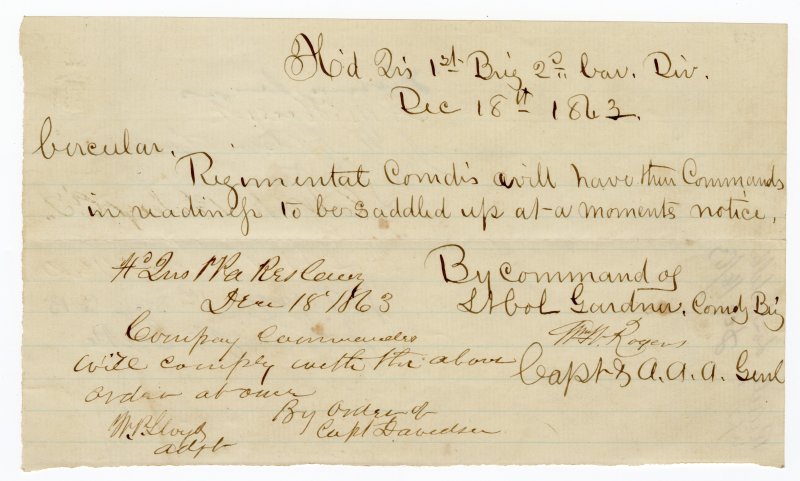 H'd Qrs 1st Brig 2d Cav. Div.
Dec 18th 1863.
Circular.
Regimental Comd's will have their Commands
in readiness to be saddled up at a moments notice.
By command of
Lt Col Gardner, Comdg Brig
Wm H Rogers
Capt & A.A.A. Genl
Hd Qrs 1 Pa Res Cav
Dec 18 1863
Company Commanders
will comply with the above
order at once
By order of
Capt Davidson
W P Lloyd
Adjt